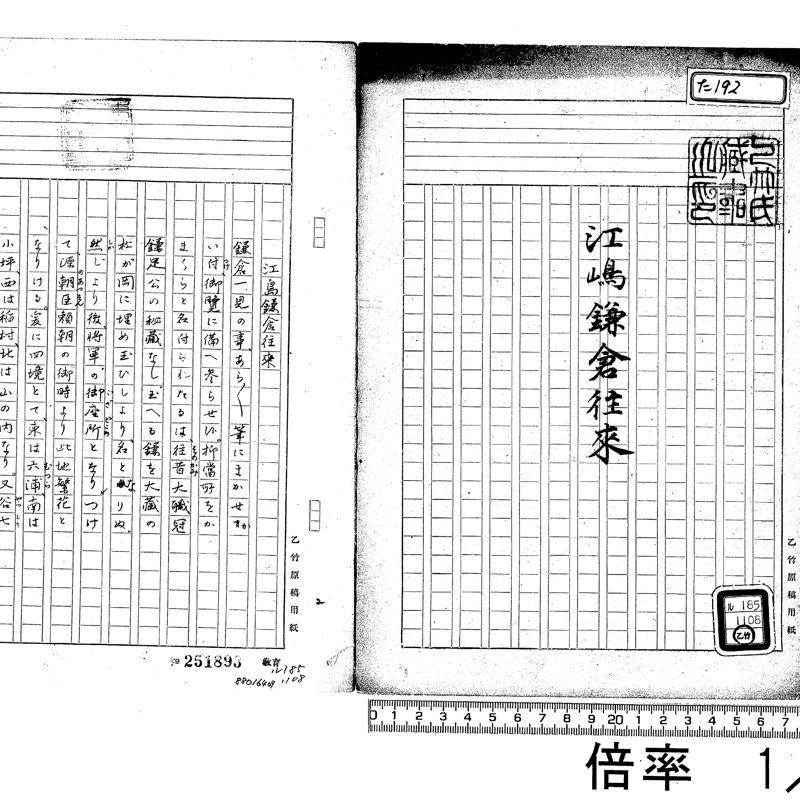 た192
乙竹氏
蔵書
之印
江嶋鎌倉往來
乙竹原稿用紙
ル185
1108
乙竹
江島鎌倉往來
鎌倉一見の事、あら〱筆にまかせ
い付、御覽に備へ参らせ候。抑當所をか
まくらと名付られたるは、往昔大職冠
鎌足公の秘藏なし玉へる鎌を大藏の
松が岡に埋め玉ひしより、名となりぬ。
然しより後、將軍の御座所となり、つけ
て、源朝臣賴朝の御時より此地繁花と
なりける。爰に四境とて、東は六浦、南は
小坪、西は稲村、北は山の内なり。又谷七
乙竹原稿用紙
2
251893
教育
ル185
1108
88016409
0 1 2 3 4 5 6 7 8 9 20 1 2 3 4 5 6 7
倍率 1/